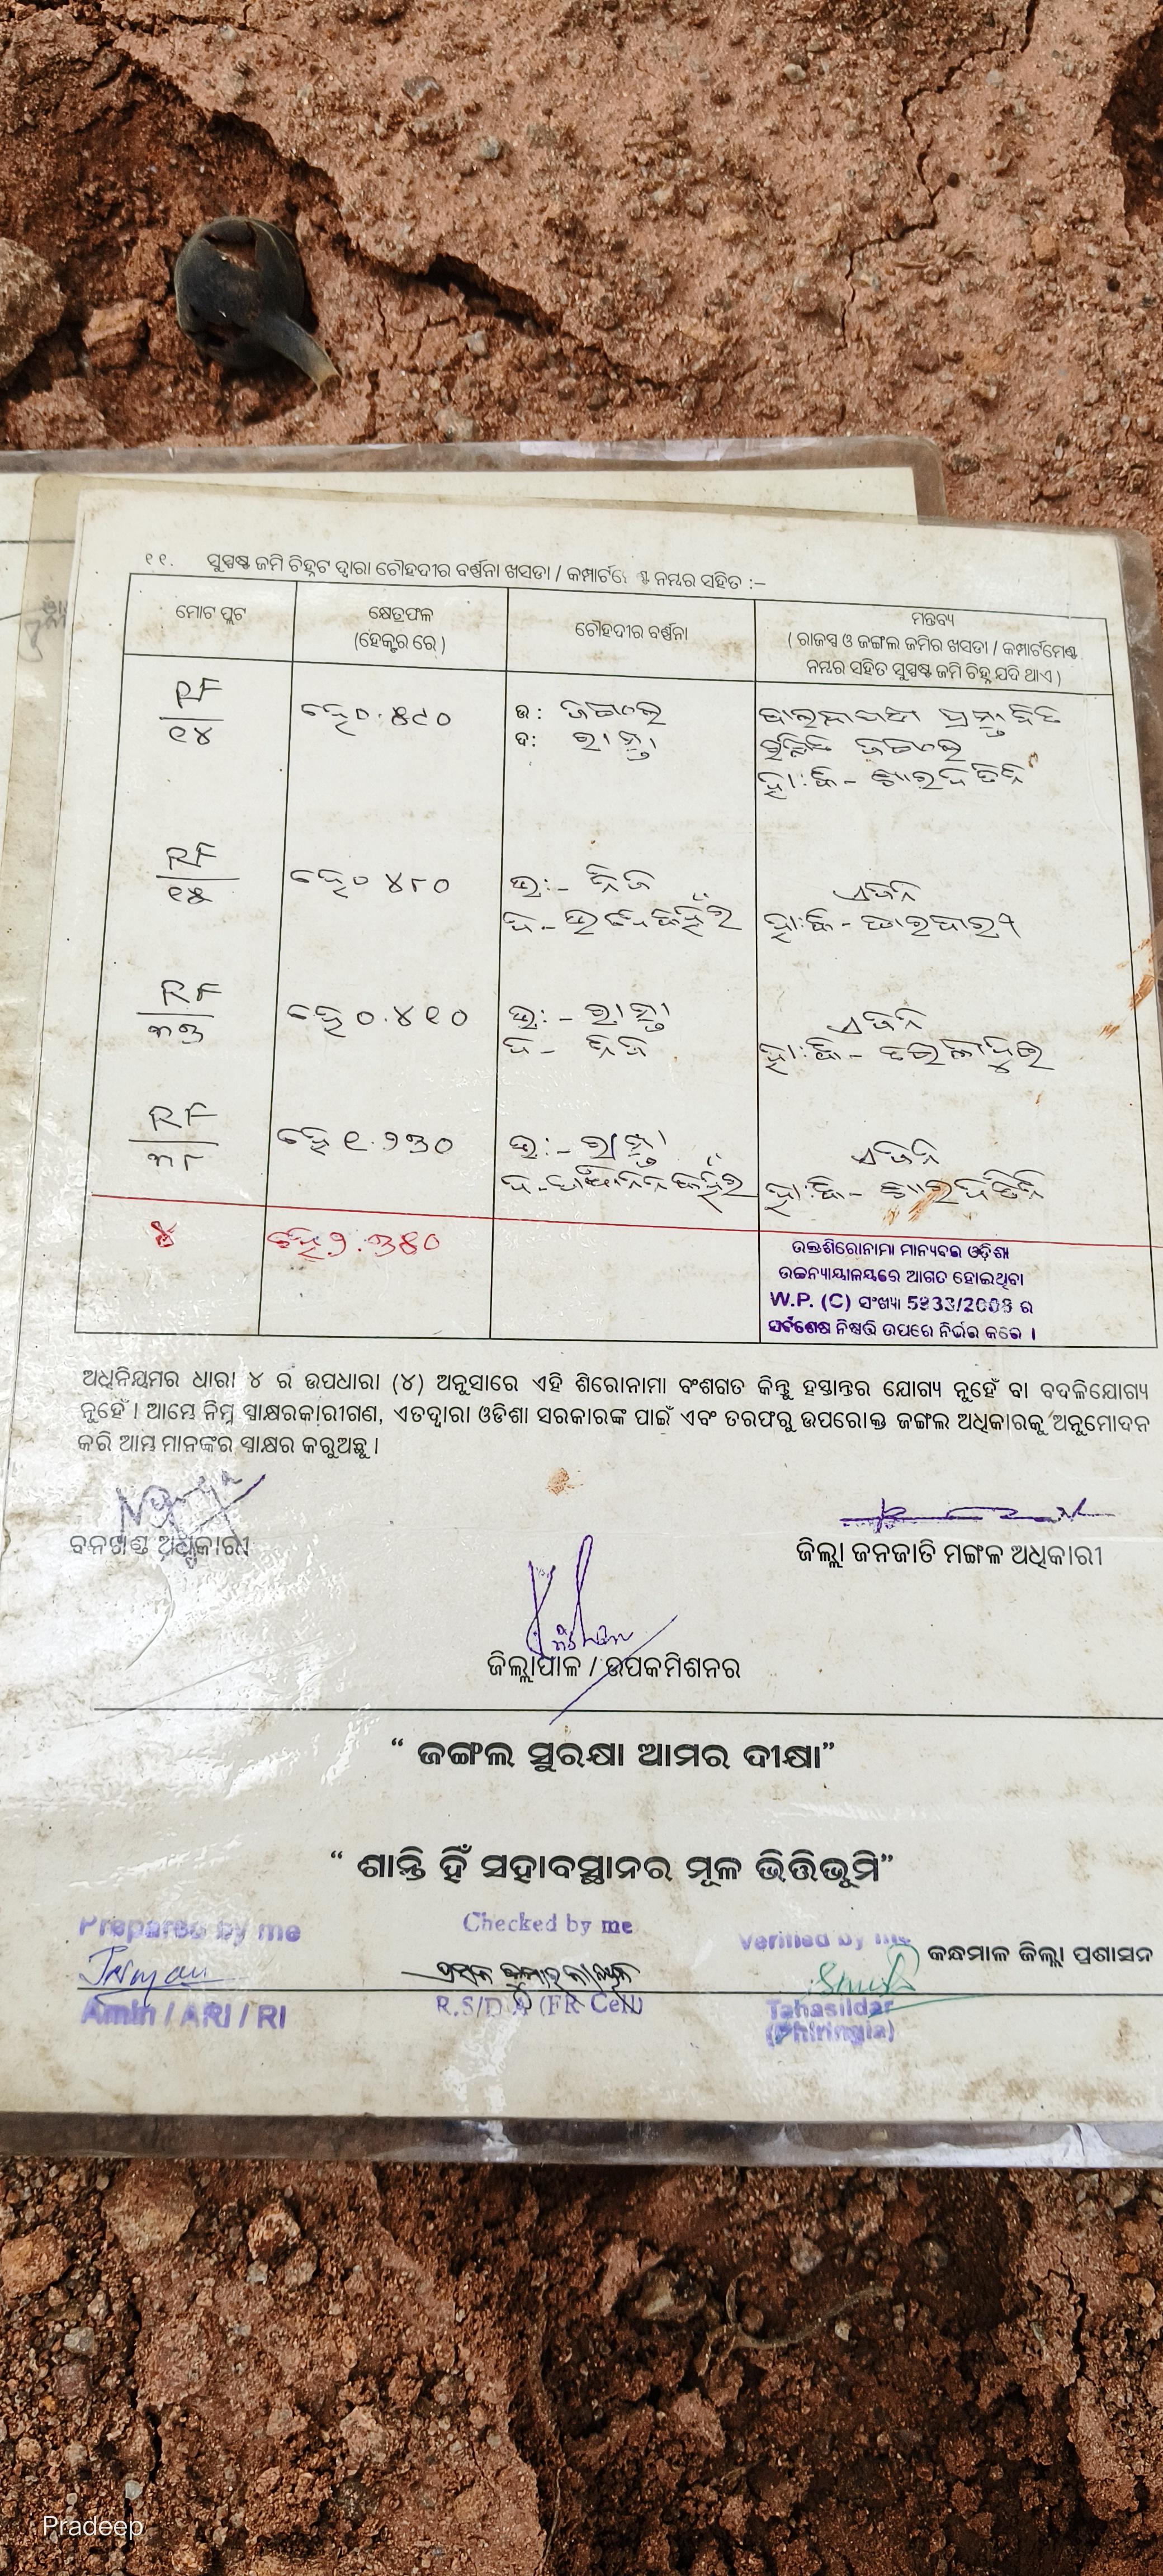 ୧୧. ସୁସ୍ପଷ୍ଟ ଜମି ଚିହ୍ନଟ ଦ୍ୱାରା ଚୌହଦୀର ବର୍ଣ୍ଣନା ଖସଡା / କମ୍ପାର୍ଟମେଣ୍ଟ ନମ୍ବର ସହିତ :–
ମୋଟ ପ୍ଲଟ
କ୍ଷେତ୍ରଫଳ
(ହେକ୍ଟର ରେ)
ଚୌହଦୀର ବର୍ଣ୍ଣନା
ମନ୍ତବ୍ୟ
( ରାଜସ୍ୱ ଓ ଜଙ୍ଗଲ ଜମିର ଖସଡା / କମ୍ପାର୍ଟମେଣ୍ଟ
ନମ୍ବର ସହିତ ସୁସ୍ପଷ୍ଟ ଜମି ଚିହ୍ନ ଯଦି ଥାଏ )
RF
୧୪
ହେ ୦.୫୯୦
ଉ : ଜଙ୍ଗଲ
ଦ: ରାସ୍ତା
ଜଙ୍ଗଲ
ହା:କି -
RF
୧୫
ହେ ୦ ୪୮୦
ଉ:- ନିଜି
ଦ-
ଏଜନି
ହା:କି -
RF
୩୬
ହେ ୦.୪୧୦
ଉ: - ରାସ୍ତା
ଦ- ନିଜି
ଏଜନି
ହା:କି -
RF
୩୮
ହେ ୧.୨୩୦
ଉ:- ରାସ୍ତା
ଦ-
ଏଜନି
ହା:କି -
୪
ହେ ୨.
ଉକ୍ତଶିରୋନାମା ମାନ୍ୟବର ଓଡ଼ିଶା
ଉଚ୍ଚନ୍ୟାୟାଳୟରେ ଆଗତ ହୋଇଥିବା
W.P. (C) ସଂଖ୍ୟା ର
ସର୍ବଶେଷ ନିଷ୍ପତ୍ତି ଉପରେ ନିର୍ଭର କରେ ।
ଅଧିନିୟମର ଧାରା ୪ ର ଉପଧାରା (୪) ଅନୁସାରେ ଏହି ଶିରୋନାମା ବଂଶଗତ କିନ୍ତୁ ହସ୍ତାନ୍ତର ଯୋଗ୍ୟ ନୁହେଁ ବା ବଦଳିଯୋଗ୍ୟ
ନୁହେଁ । ଆମ୍ଭେ ନିମ୍ନ ସ୍ୱାକ୍ଷରକାରୀଗଣ, ଏତଦ୍ୱାରା ଓଡିଶା ସରକାରଙ୍କ ପାଇଁ ଏବଂ ତରଫରୁ ଉପରୋକ୍ତ ଜଙ୍ଗଲ ଅଧିକାରକୁ ଅନୁମୋଦନ
କରି ଆମ୍ଭ ମାନଙ୍କର ସ୍ୱାକ୍ଷର କରୁଅଛୁ ।
ବନଖଣ୍ଡ ଅଧିକାରୀ
ଜିଲ୍ଲା ଜନଜାତି ମଙ୍ଗଳ ଅଧିକାରୀ
ଜିଲ୍ଲାପାଳ / ଉପକମିଶନର
“ ଜଙ୍ଗଲ ସୁରକ୍ଷା ଆମର ଦୀକ୍ଷା”
“ ଶାନ୍ତି ହିଁ ସହାବସ୍ଥାନର ମୂଳ ଭିତ୍ତିଭୂମି”
Prepared by me
Checked by me
Verified by me
କନ୍ଧମାଳ ଜିଲ୍ଲା ପ୍ରଶାସନ
Amin / ARI / RI
R.S/D.A (FR Cell)
Tahasildar
(Phiringia)
Pradeep